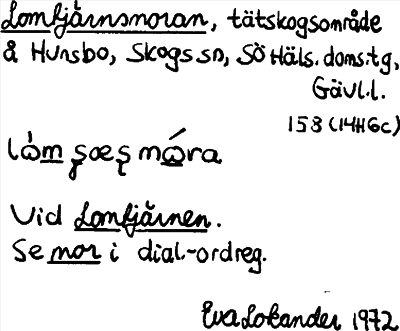 Lomtjärnsmoran, tätskogsområde
å Hunsbo, Skogs sn, SöHäls. doms:tg,
Gävl.l.
158 (14H6c)
Vid Lomtjärnen.
Se mor i dial.-ordreg.
Eva Lokander 1972